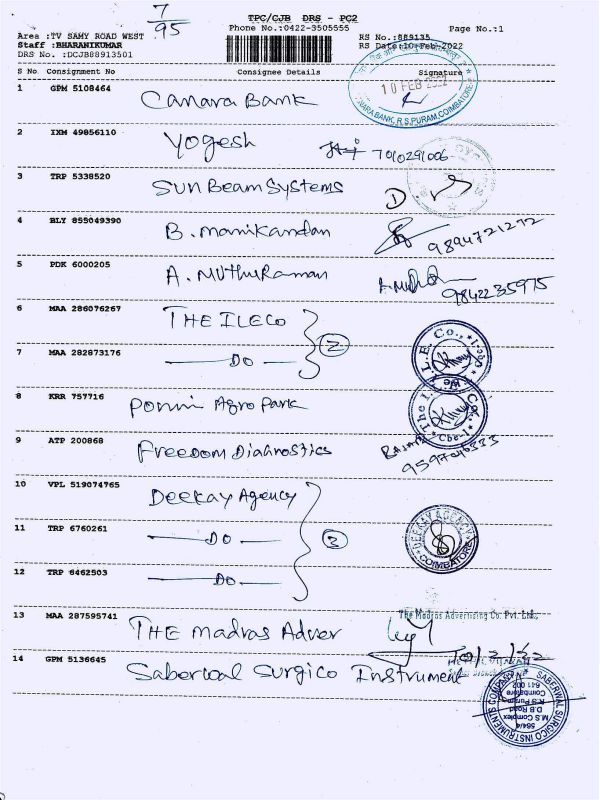 7
95
TPC/CJB DRS - PC2
Phone No.:0422-3505555
Page No.:1
Area :TV SAMY ROAD WEST
RS No.:889135
Staff :BHARANIKUMAR
RS Date:10-Feb-2022
DRS No. :DCJB88913501
S No Consignment No Consignee Details Signature
1 GPM 5108464 Canara Bank
10 FEB 2022
CANARA BANK, R.S.PURAM, COIMBATORE
2 IXM 49856110 Yogesh 7010291006
3 TRP 5338520 Sun Beam Systems 1
4 BLY 855049390 B. Manikandan 9894721272
5 PDK 6000205 A. Muthu Raman 9842235975
6 MAA 286076267 THE ILECo 2
7 MAA 282873176 DO
The I.L.E. Co.,
8 KRR 757716 Ponni Agro Park
9 ATP 200868 Freedom Diagnostics
10 VPL 519074765 Deekay Agency
11 TRP 6760261 DO
DEEKAY AGENCY
COIMBATORE
12 TRP 6462503 DO
13 MAA 287595741 THE Madras Adver
The Madras Advertising Co. Pvt. Ltd.,
10/2/22
14 GPM 5136645 Saberwal Surgico Instrument
SABERWAL SURGICO INSTRUMENTS COMPANY
564/4
M.S Complex
D.B Road
R.S Puram
Coimbatore
641 002